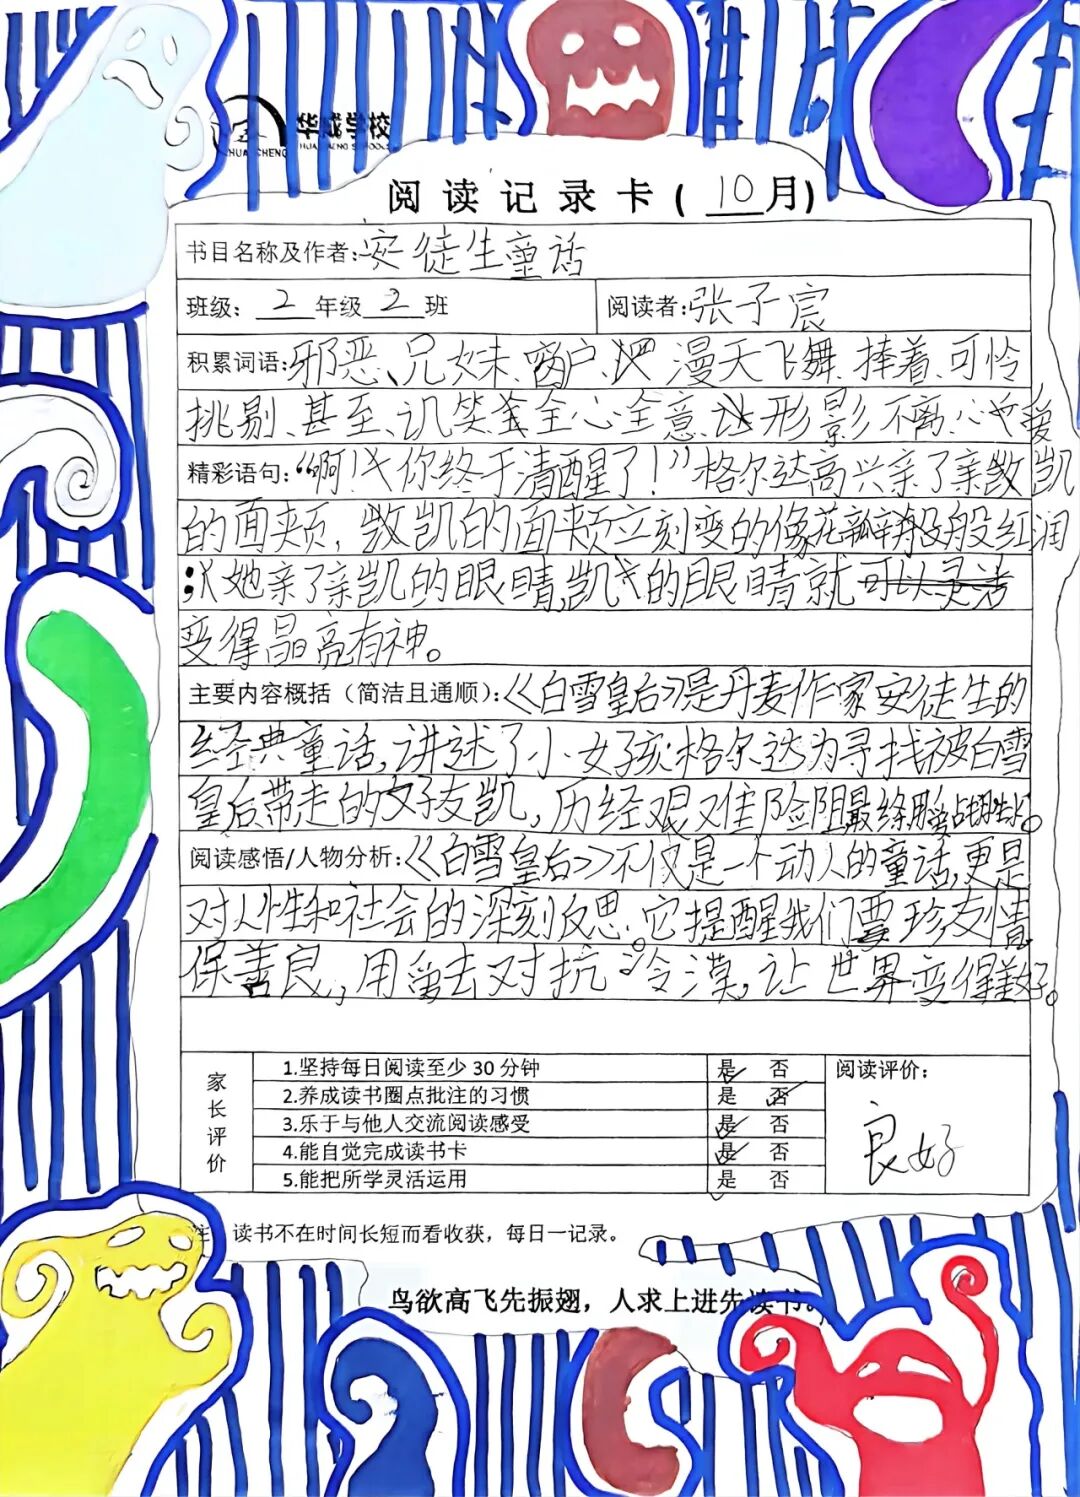 华成学校
HUACHENG SCHOOLS
阅读记录卡(10月)
书目名称及作者:安徒生童话
班级: 2 年级 2 班 阅读者:张子宸
积累词语:邪恶、兄妹、窗户、漫天飞舞、捧着、可怜
挑剔、甚至、讥笑、全心全意、形影不离、心爱
精彩语句:“啊!你终于清醒了!”格尔达高兴亲了亲凯
的面颊,凯的面颊立刻变的像花瓣般红润
她亲了亲凯的眼睛,凯的眼睛就可以灵活
变得晶亮有神。
主要内容概括(简洁且通顺):《白雪皇后》是丹麦作家安徒生的
经典童话,讲述了小女孩格尔达为寻找被白雪
皇后带走的好友凯,历经艰难险阻最终用爱战胜
阅读感悟/人物分析:《白雪皇后》不仅是一个动人的童话,更是
对人性和社会的深刻反思。它提醒我们要珍友情
保善良,用爱去对抗冷漠,让世界变得美好。
家长评价
1.坚持每日阅读至少30分钟 是 否
2.养成读书圈点批注的习惯 是 否
3.乐于与他人交流阅读感受 是 否
4.能自觉完成读书卡 是 否
5.能把所学灵活运用 是 否
阅读评价:
良好
注:读书不在时间长短而看收获,每日一记录。
鸟欲高飞先振翅,人求上进先读书。